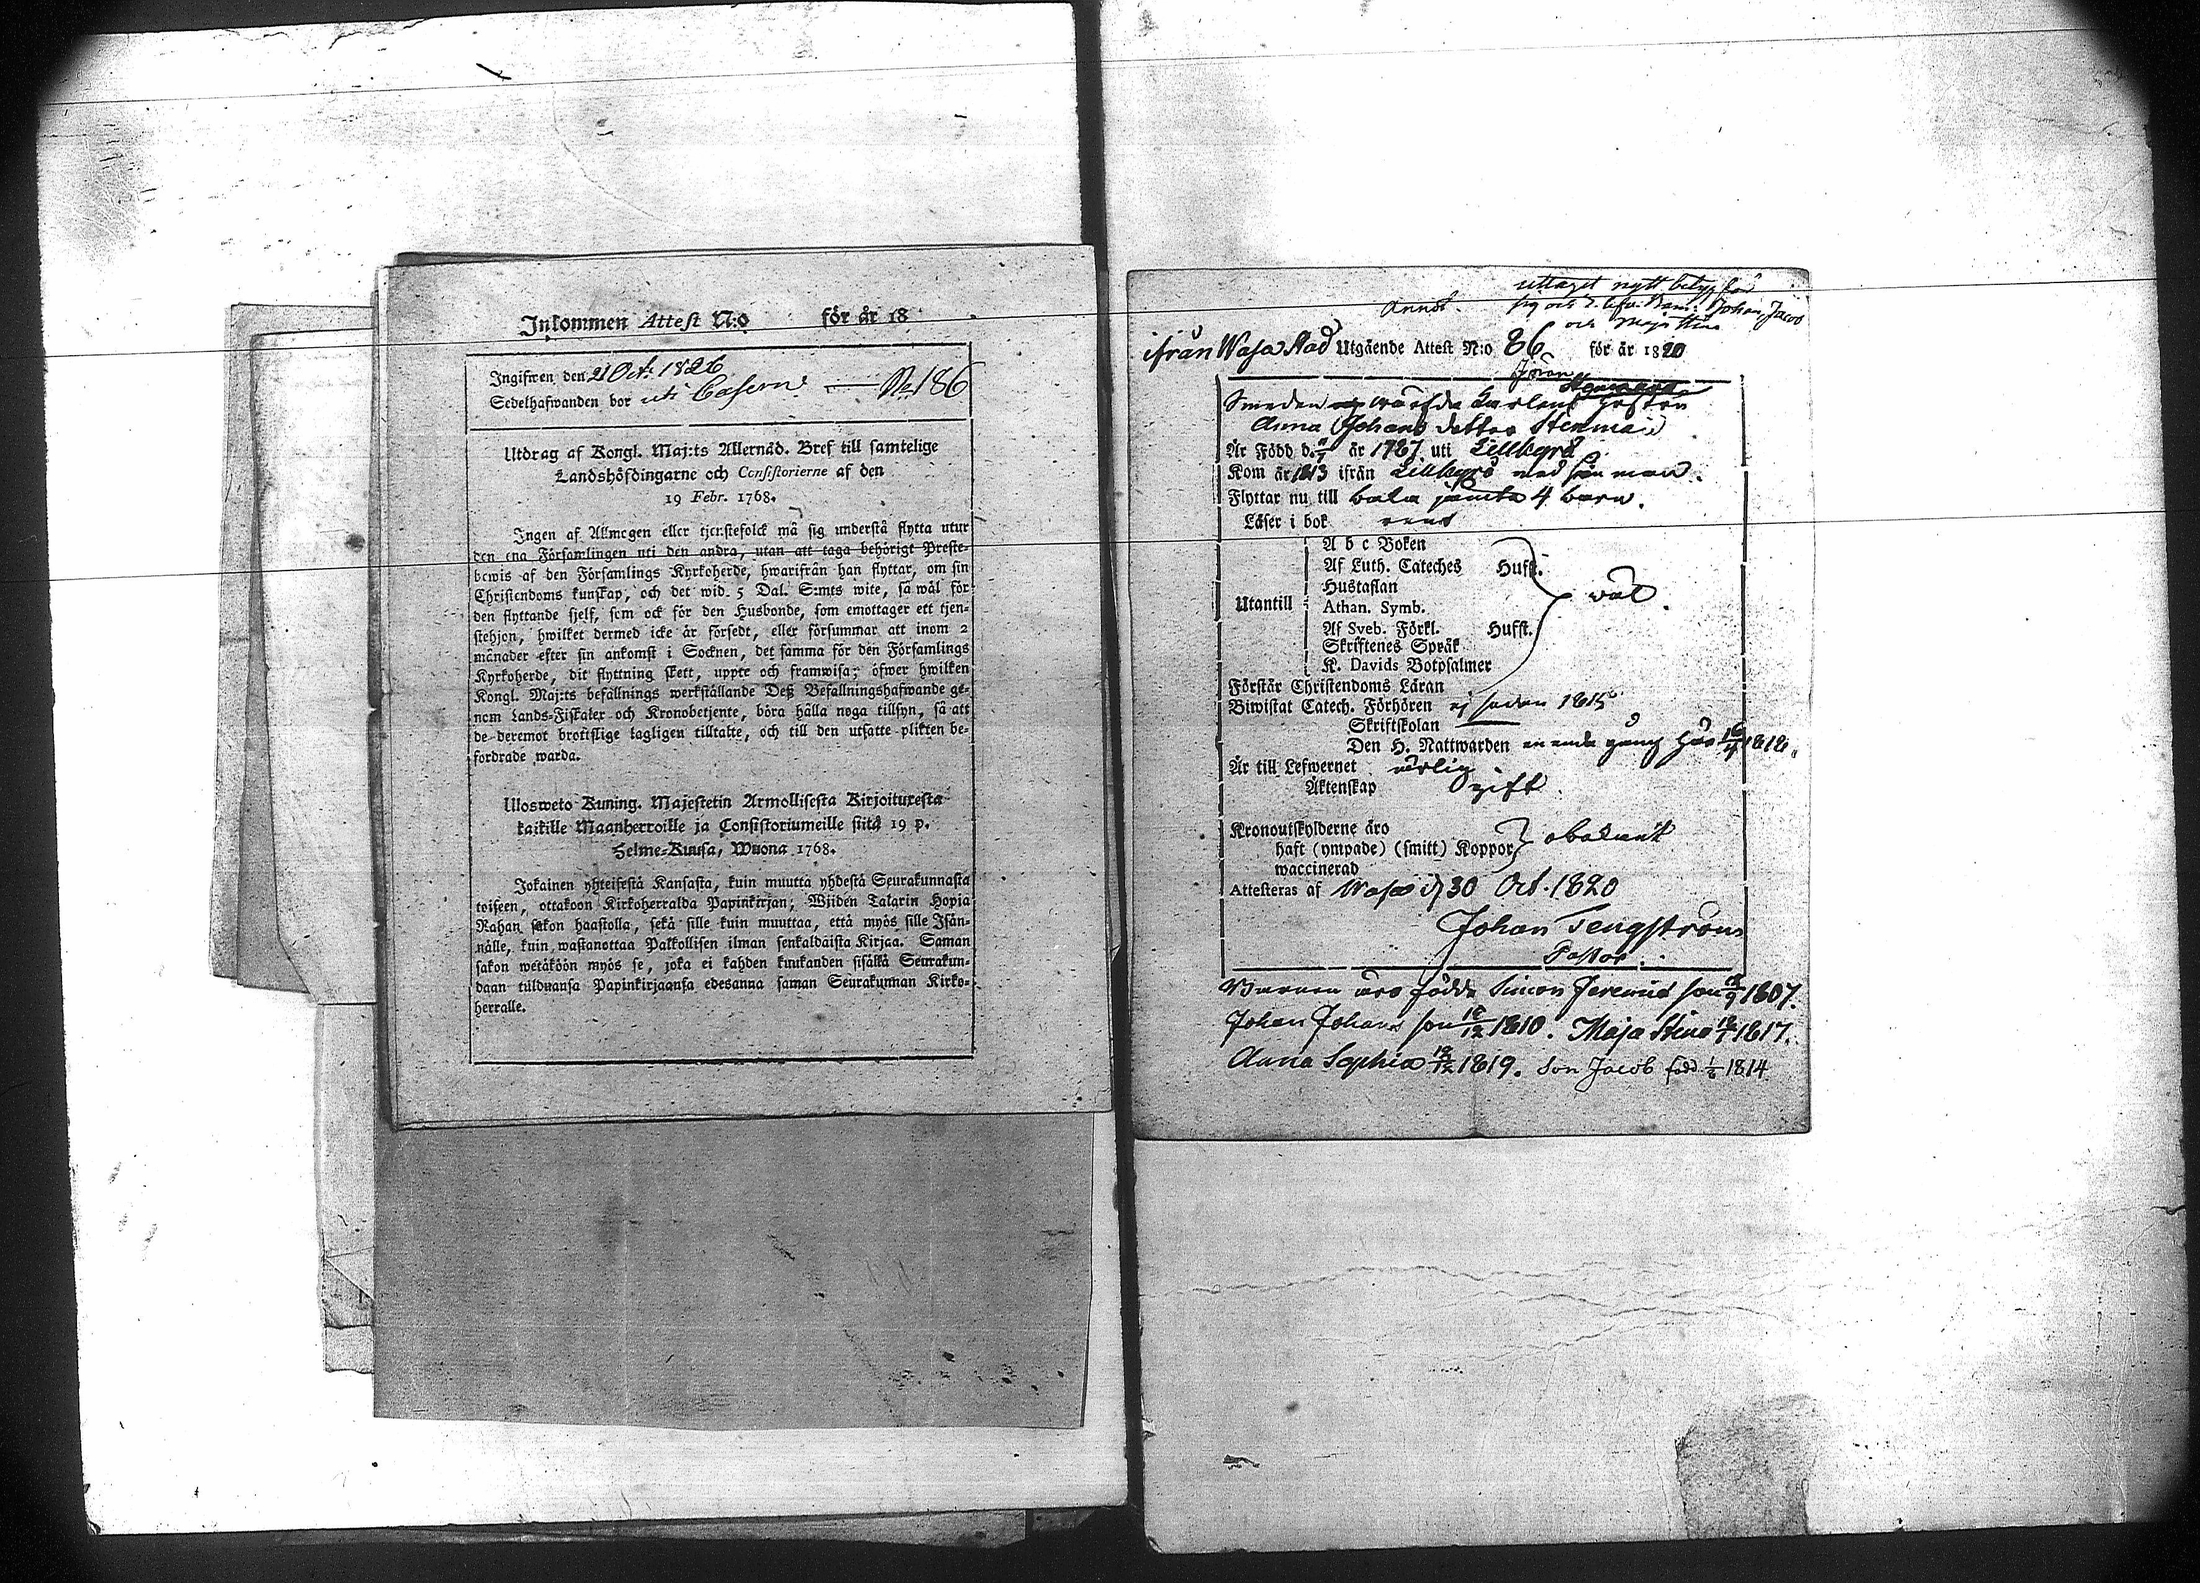 Inkommen Attest N:o för år 18
Ingifwen den 21 Oct. 1826
Sedelhafwanden bor uti Casern — No 186
Utdrag af Kongl. Maj:ts Allernåd. Bref till samtelige
Landshöfdingarne och Consistorierne af den
19 Febr. 1768.
Ingen af Allmogen eller tjenstefolck må sig understå flytta utur
den ena Församlingen uti den andra, utan att taga behörigt Preste-
bewis af den Församlings Kyrkoherde, hwarifrån han flyttar, om sin
Christendoms kunskap, och det wid 5 Dal. S:mts wite, så wäl för
den flyttande sjelf, som ock för den Husbonde, som emottager ett tjen-
stehjon, hwilket dermed icke är försedt, eller försummar att inom 2
månader efter sin ankomst i Socknen, det samma för den Församlings
Kyrkoherde, dit flyttning skett, uppte och framwisa; öfwer hwilken
Kongl. Maj:ts befallnings werkställande Deß Befallningshafwande ge-
nom Lands-Fiskaler och Kronobetjente, böra hålla noga tillsyn, så att
de deremot brotslige lagligen tilltalte, och till den utsatte plikten be-
fordrade warda.
Ulosweto Kuning. Majestetin Armollisesta Kirjoituresta
kaikille Maanherroille ja Consistoriumeille siitä 19 p.
Helme-Kuusa, Wuona 1768.
Jokainen yhteisestä Kansasta, kuin muutta yhdestä Seurakunnasta
toiseen, ottakoon Kirkoherralda Papinkirjan; Wijden Talarin Hopia
Rahan sakon haastolla, sekä sille kuin muuttaa, että myös sille Isän-
nälle, kuin wastanottaa Palkollisen ilman senkaldaista Kirjaa. Saman
sakon wetäköön myös se, joka ei kahden kuukanden sisällä Seurakun-
daan tulduansa Papinkirjaansa edesanna saman Seurakunnan Kirko-
herralle.
uttaget nytt betyg för
sig och Johan, Jacob
och Maja Stina
ifrån Wasa Stad Utgående Attest N:o 86 för år 1820
Jöran
Smeden hustru
Anna Johans dotter
Är Född d. år 1787 uti Lillkyrå
Kom år 1813 ifrån Lillkyrå med sin man.
Flyttar nu till jemte 4 barn.
Läser i bok rent
A b c Boken
Af Luth. Cateches Hufst.
Hustaflan
Utantill Athan. Symb. wäl.
Af Sveb. Förkl. Hufst.
Skriftenes Språk
K. Davids Botpsalmer
Förstår Christendoms Läran
Biwistat Catech. Förhören ej sedan 1815
Skriftskolan
Den H. Nattwarden en enda gång här 1818.
Är till Lefwernet ärlig
Äktenskap gift.
Kronoutskylderne äro
haft (ympade) (smitt) Koppor obekant
waccinerad
Attesteras af Wasa d. 30 Oct. 1820
Johan Tengström
Pastor.
Barnen äro födde Simon Jeremias son 1807.
Johan Johans son 18/12 1810. Maja Stina 1817.
Anna Sophia 1819. Son Jacob född 1814